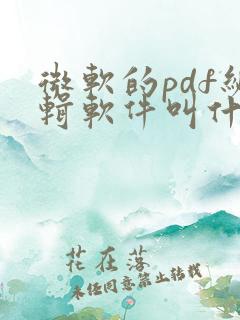 微軟的pdf編
輯軟件叫什
花在落
未经同意禁止转载